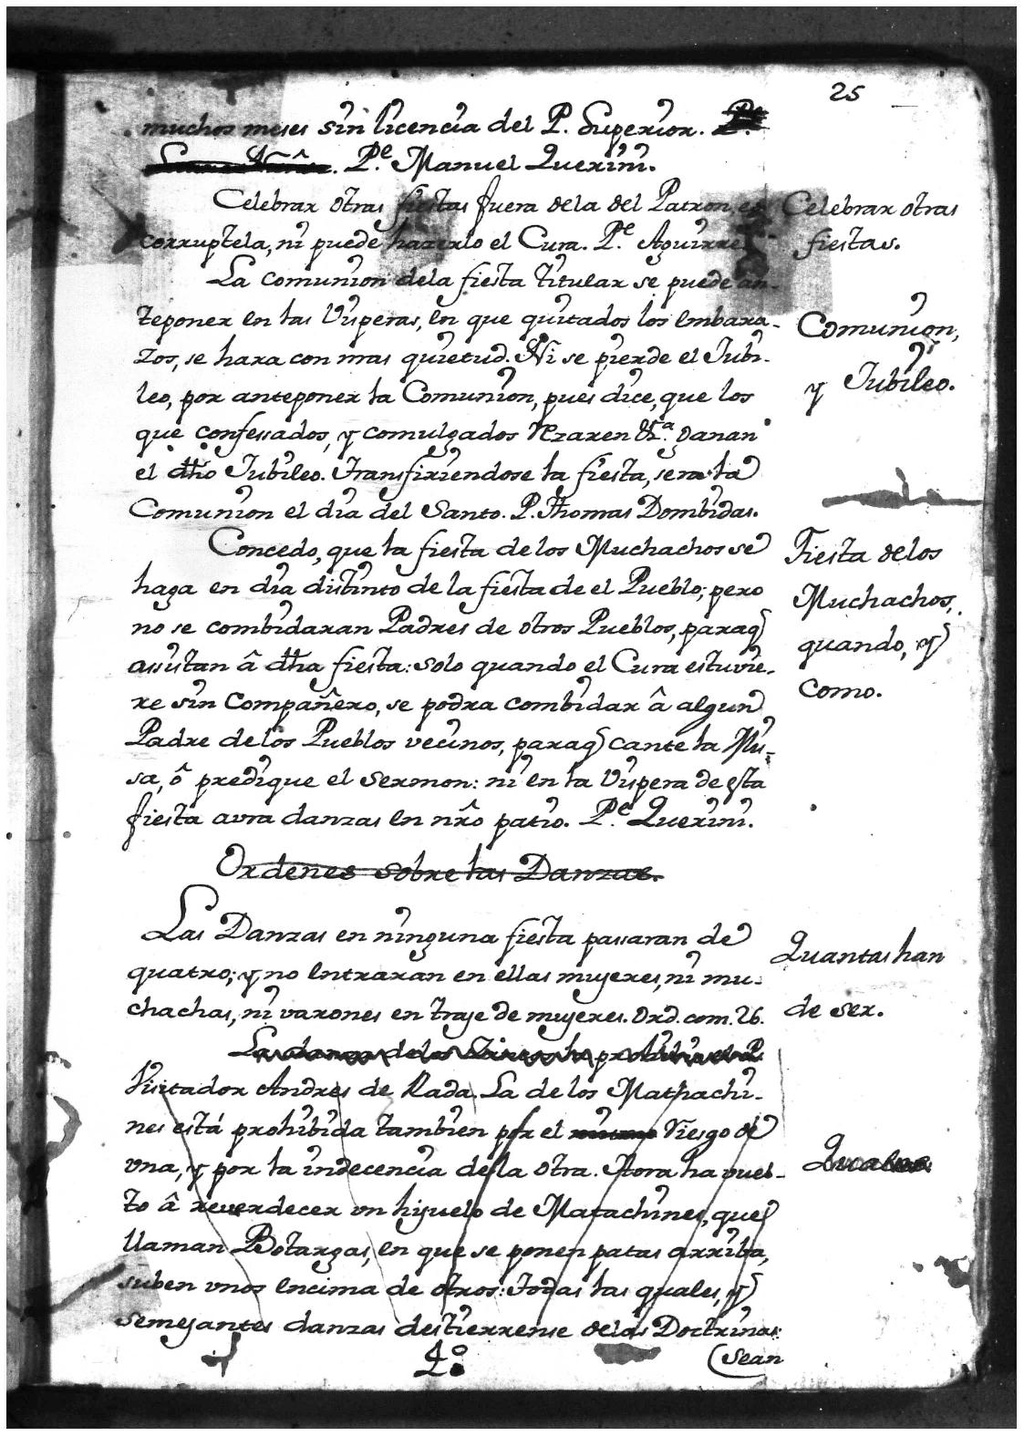 25
muchos meses sin licencia del P. Superior.
Pe. Manuel Querini.
Celebrar otras fiestas fuera dela del Patron, es
corruptela, ni puede hazerlo el Cura. Pe. Aguirre.
Celebrar otras
fiestas.
La comunion dela fiesta titular se puede an-
teponer en las Visperas, en que quitados los embara-
zos, se hara con mas quietud. Ni se pierde el Jubi-
leo, por anteponer la Comunion, pues dice, que los
que confessados, y comulgados rezaren &a. ganan
el dho Jubileo. Transfiriendose la fiesta, sera la
Comunion el dia del Santo. P. Thomas Dombidas.
Comunion,
y Jubileo.
Concedo, que la fiesta de los Muchachos se
haga en dia distinto de la fiesta de el Pueblo; pero
no se combidaran Padres de otros Pueblos, paraq
assistan â dha fiesta: solo quando el Cura estuvie-
re sin Compañero, se podra combidar â algun
Padre de los Pueblos vecinos, paraq cante la Mi-
sa, ô predique el sermon: ni en la Vispera de esta
fiesta avra danzas en nrô patio. Pe. Querini.
Fiesta de los
Muchachos,
quando, y
como.
Ordenes sobre las Danzas.
Las Danzas en ninguna fiesta passaran de
quatro; y no entraran en ellas mujeres, ni mu-
chachas, ni varones en traje de mujeres. Ord. com. 26.
Quantas han
de ser.
La danza de los ha prohibido el P.
Visitador Andres de Rada. La de los Mathachi-
nes está prohibida tambien por el riesgo de
vna, y por la indecencia de la otra. Aora ha vuel-
to â reverdecer vn hijuelo de Matachines, que
llaman Botargas, en que se ponen patas arriba,
suben vnos encima de otros: Todas las quales, y
semejantes danzas destierrense de las Doctrinas:
(sean
4o.